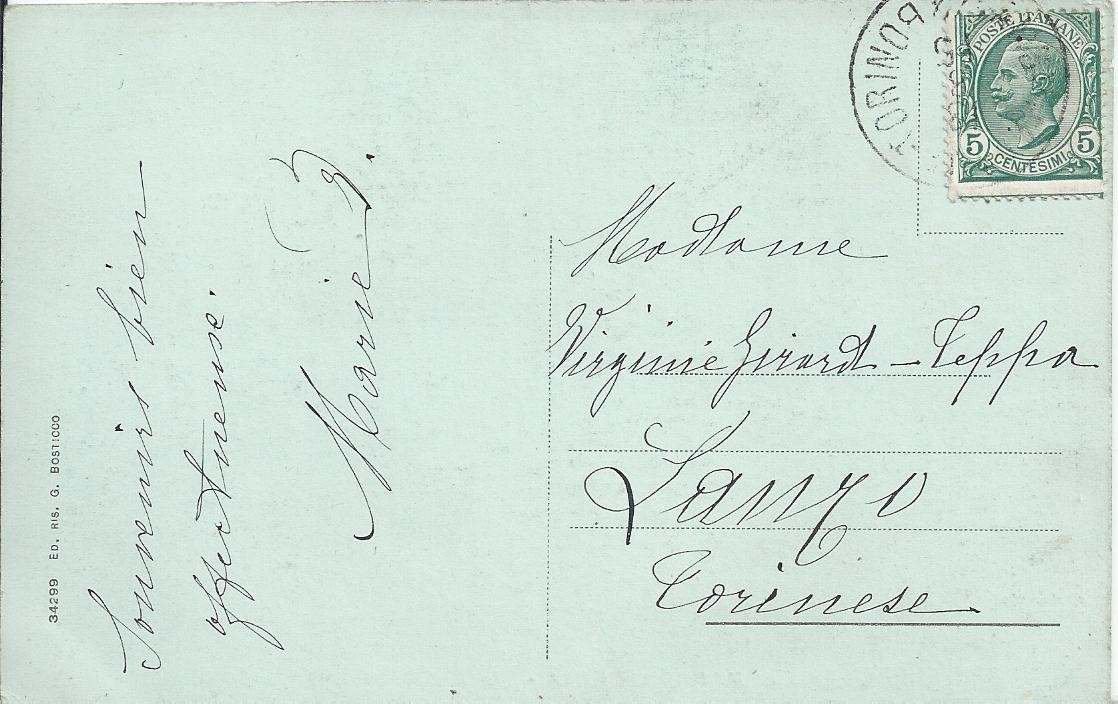 Souvenirs bien
affectueuse.
Marie G.
34299 ED. RIS. G. BOSTICCO
TORINO
POSTE ITALIANE
5 5
CENTESIMI
Madame
Virginie Girard-Teppa
Lanzo
Torinese